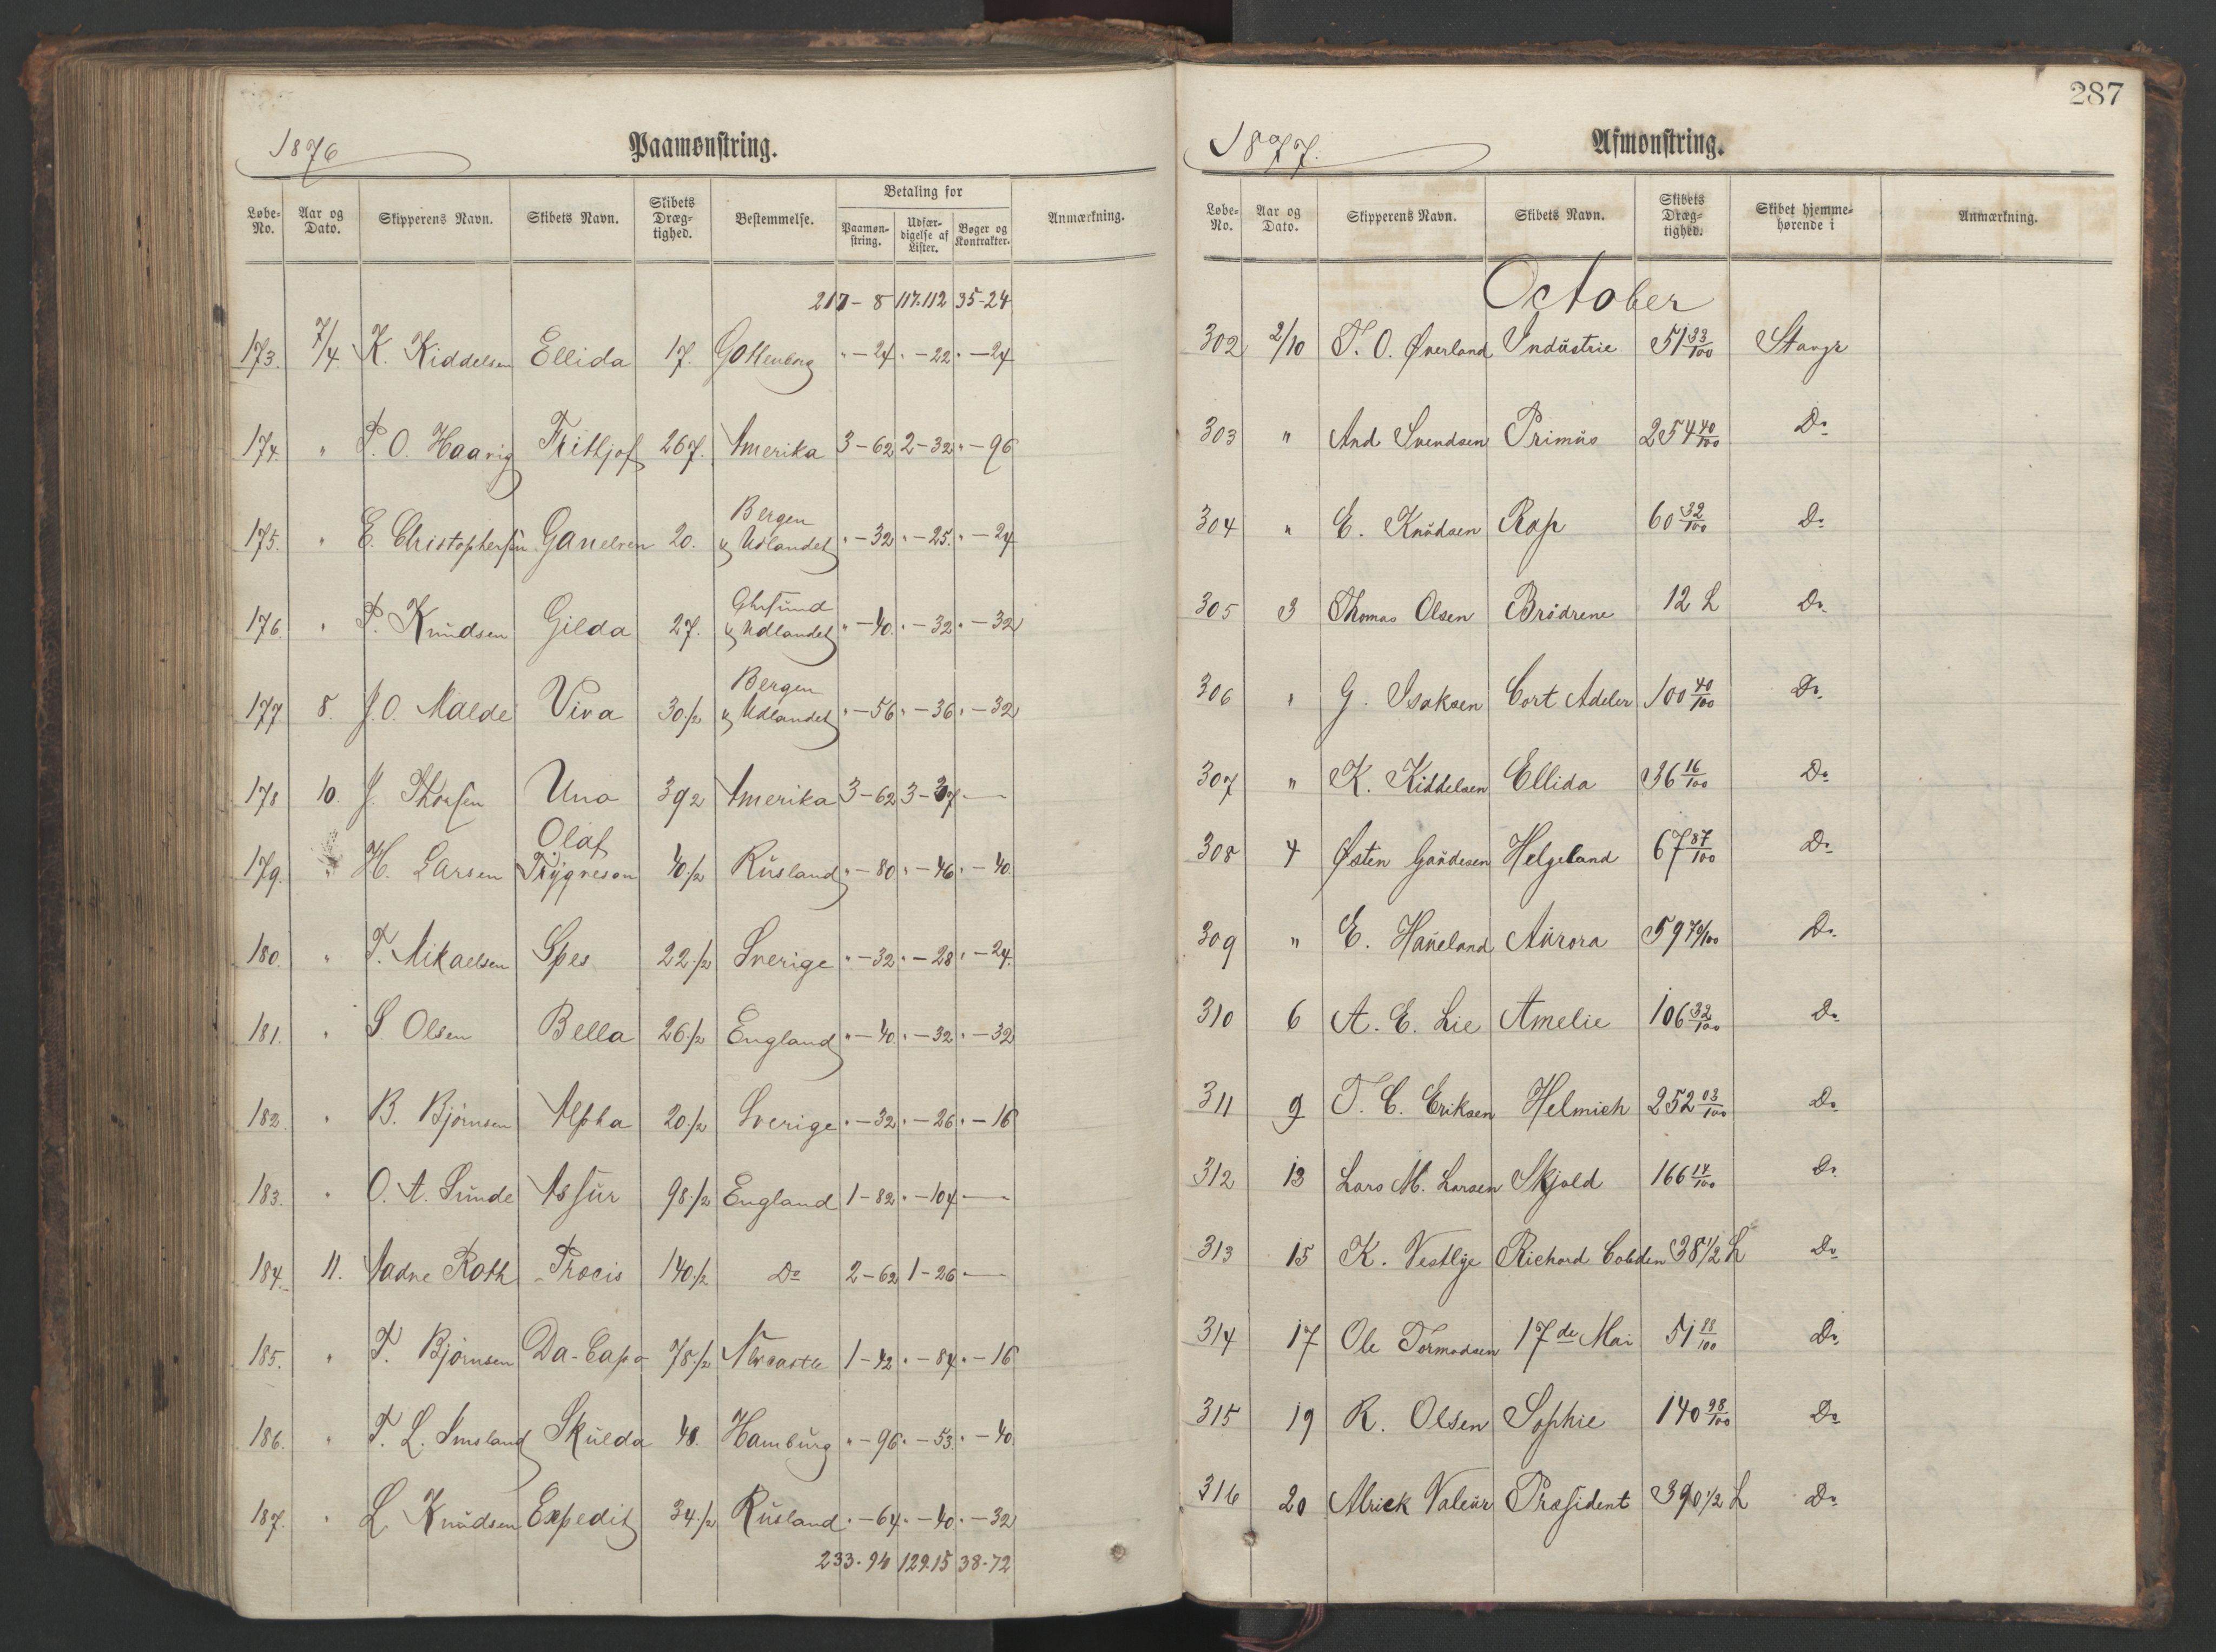 1876 Paamønstring.
Løbe-No. Aar og Dato. Skipperens Navn. Skibets Navn. Skibets Dræg-tighed. Bestemmelse. Betaling for Paamøn-string. Udfær-digelse af Lister. Bøger og Kontrakter. Anmærkning.
217 - 8 117.112 35-24
173. 7/4 K. Kiddelsen Ellida 17. Gottenborg " - 24 " - 22 " - 24
174. " P. O. Haavig Frithjof 267. Amerika 3-62 2-32 " - 96
Bergen
175. " E. Christophersen Ganelren 20. & Udlandet " - 32 " - 25. " - 24
176. " P. Knudsen Gilda 27. & Udlandet " - 40. " - 32 " - 32
Bergen
177 8. J. O. Malde Viva 30 1/2 & Udlandet " - 56 " - 36 " - 32
178 10. J. Thorsen Una 392 Amerika 3-62 3-37 —
Olaf
179. " H. Larsen Trygveson 40 1/2 Rusland " - 80 " - 46 " - 40.
180. " T. Mikaelsen Spes 22 1/2 Sverige " - 32 " - 28 " - 24.
181. " S. Olsen Bella 26 1/2 England " - 40. " - 32 " - 32
182. " B. Bjørnsen Alpha 20 1/2 Sverige " - 32 " - 26 " - 16
183. " O. A. Sunde Assur 98 1/2 England 1-82 " - 104 —
184. 11. Aadne Roth Procis 140 1/2 Do 2-62 1-26 —
185. " T. Bjørnsen Da-Capo 78 1/2 Newcastle 1-42 " - 84 " - 16
186. " T. L. Imsland Skulda 48. Hamburg " - 96 " - 53. " - 40
187. " L. Knudsen Expedit 34 1/2 Rusland " - 64 " - 40 " - 32
233. 94 129.15 38-72
287
1877. Afmønstring.
Løbe-No. Aar og Dato. Skipperens Navn. Skibets Navn. Skibets Dræg-tighed. Skibet hjemme-hørende i Anmærkning.
October
302 2/10 T. O. Øverland Industrie 51 33/100 Stavgr
303 " And Svendsen Primus 254 40/100 Do
304 " E. Knudsen Rap 60 32/100 Do
305 3 Thomas Olsen Brødrene 12 L Do
306 " G. Isaksen Cort Adeler 100 40/100 Do
307 " K. Kiddelsen Ellida 36 16/100 Do
308 4 Østen Gaudesen Helgeland 67 87/100 Do
309 " E. Haueland Aurora 59 74/100 Do
310 6 A. E. Lie Amelie 106 32/100 Do
311 9 T. C. Eriksen Helmich 252 03/100 Do
312 13 Lars M. Larsen Skjold 166 14/100 Do
313 15 K. Vestlye Richard Cobden 38 1/2 L Do
314 17 Ole Tormodsen 17de Mai 51 88/100 Do
315 19 R. Olsen Sophie 140 98/100 Do
316 20 Alrick Valeur Præsident 390 1/2 L Do